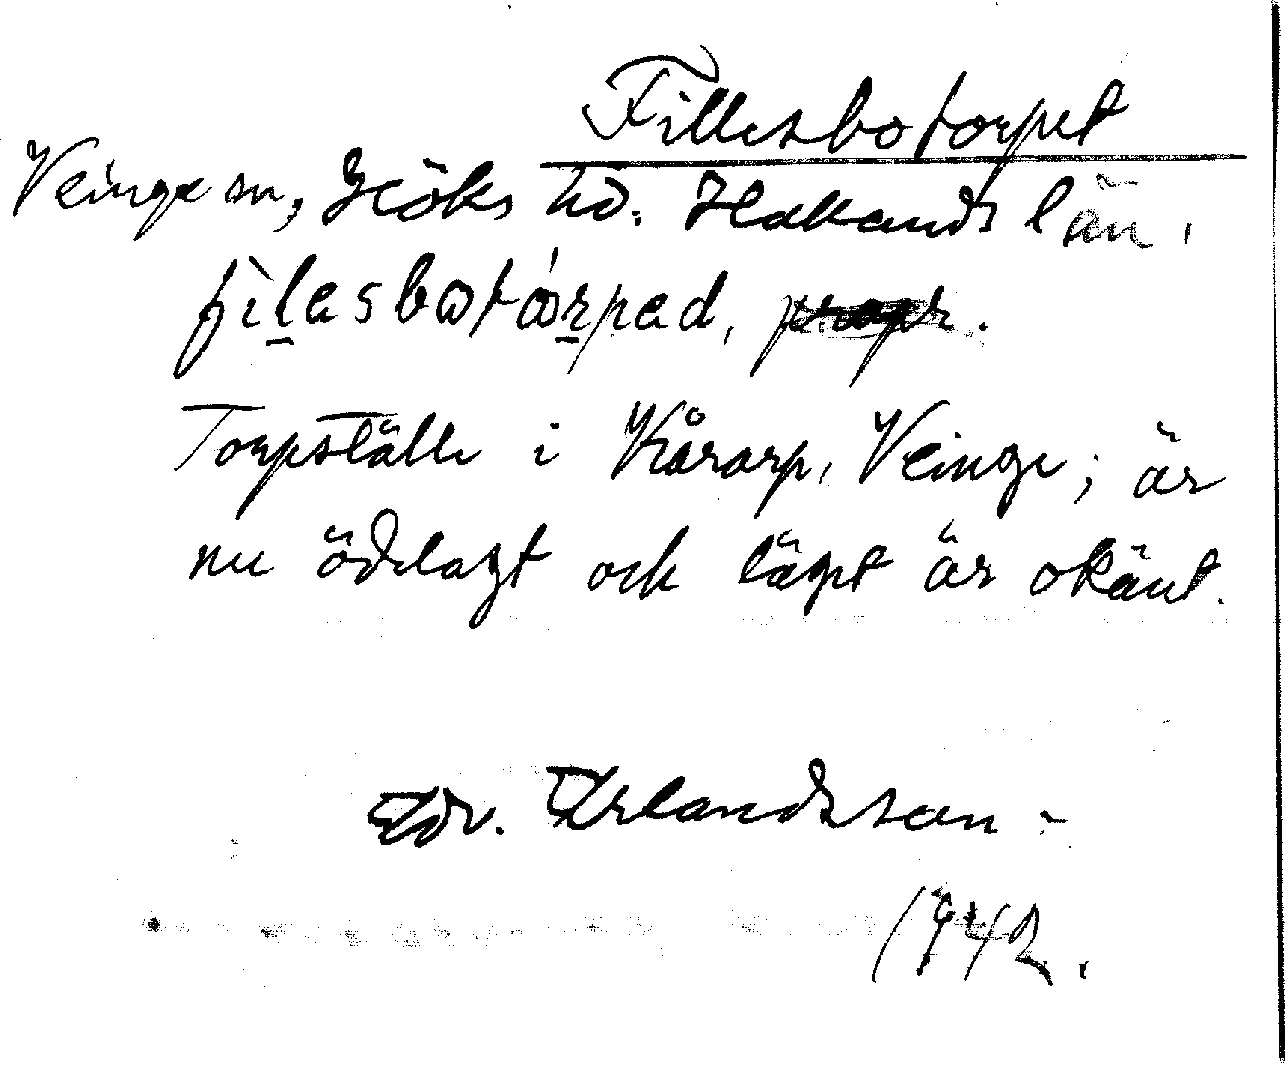 Fillesbotorpet
Veinge sn, Höks hd. Hallands län.
fìl̲esbotórp̲ed,
Torpställe i Kårarp, Veinge; är
nu ödelagt och läget är okänt.
Edv. Erlandsson -
1942.